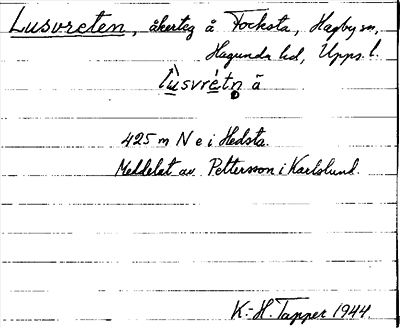 Lusvreten, åkerteg å Focksta, Hagby sn,
Hagunda hd, Upps. l.
lùsvrètn ä
425 m N e i Hedsta.
Meddelat av Pettersson i Karlslund.
K.-H. Tapper 1944.